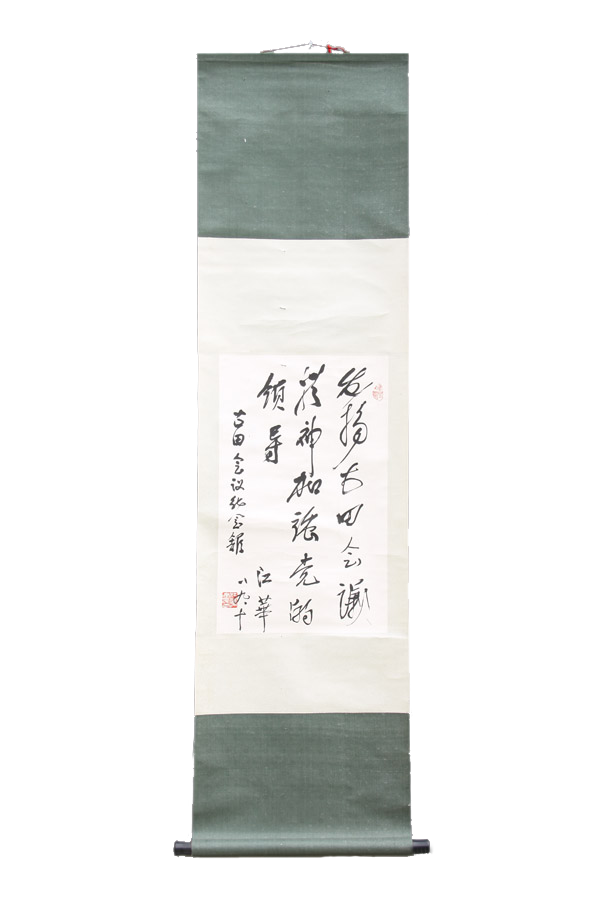 发扬古田会議
精神加强党的
领导
古田会议纪念館
江華
八九、十